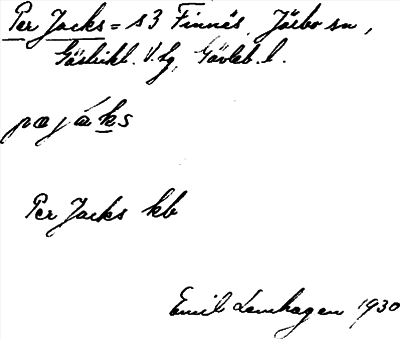 Per Jacks = s3 Finnäs, Järbo sn,
Gästrikl. V. tg, Gävleb. l.
pæjáks
Per Jacks kb
Emil Lamhagen 1930